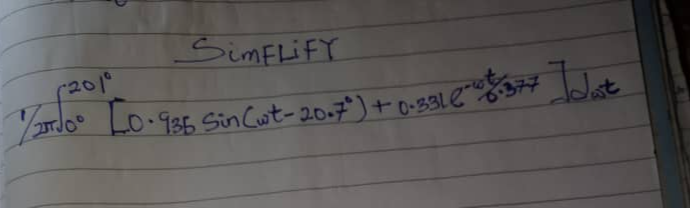 SimFLiFY
1/2π ∫0°^201° [0.936 Sin(ωt-20.7°) + 0.331e^-ωt/0.377] dωt